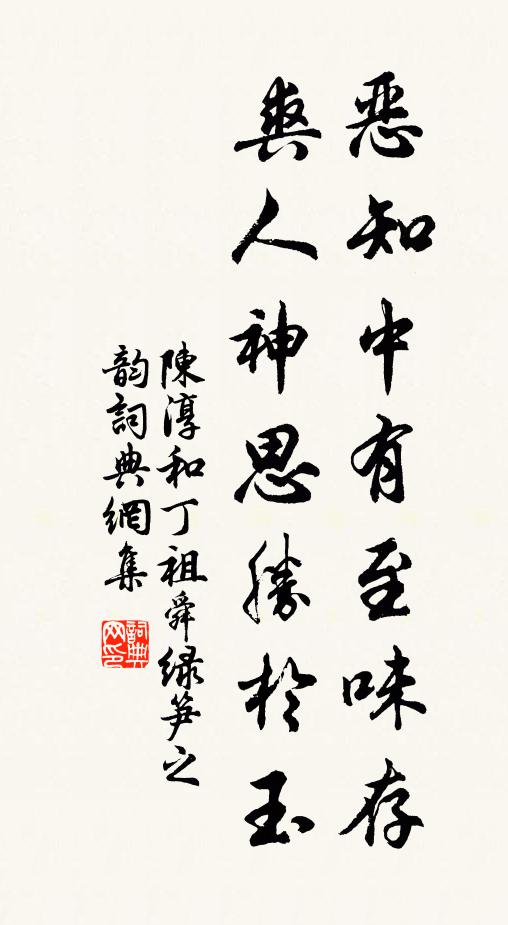 恶知中有至味存
爽人神思勝於玉
陳淳和丁祖舜緑笋之
韵詞典網集
詞典
网印